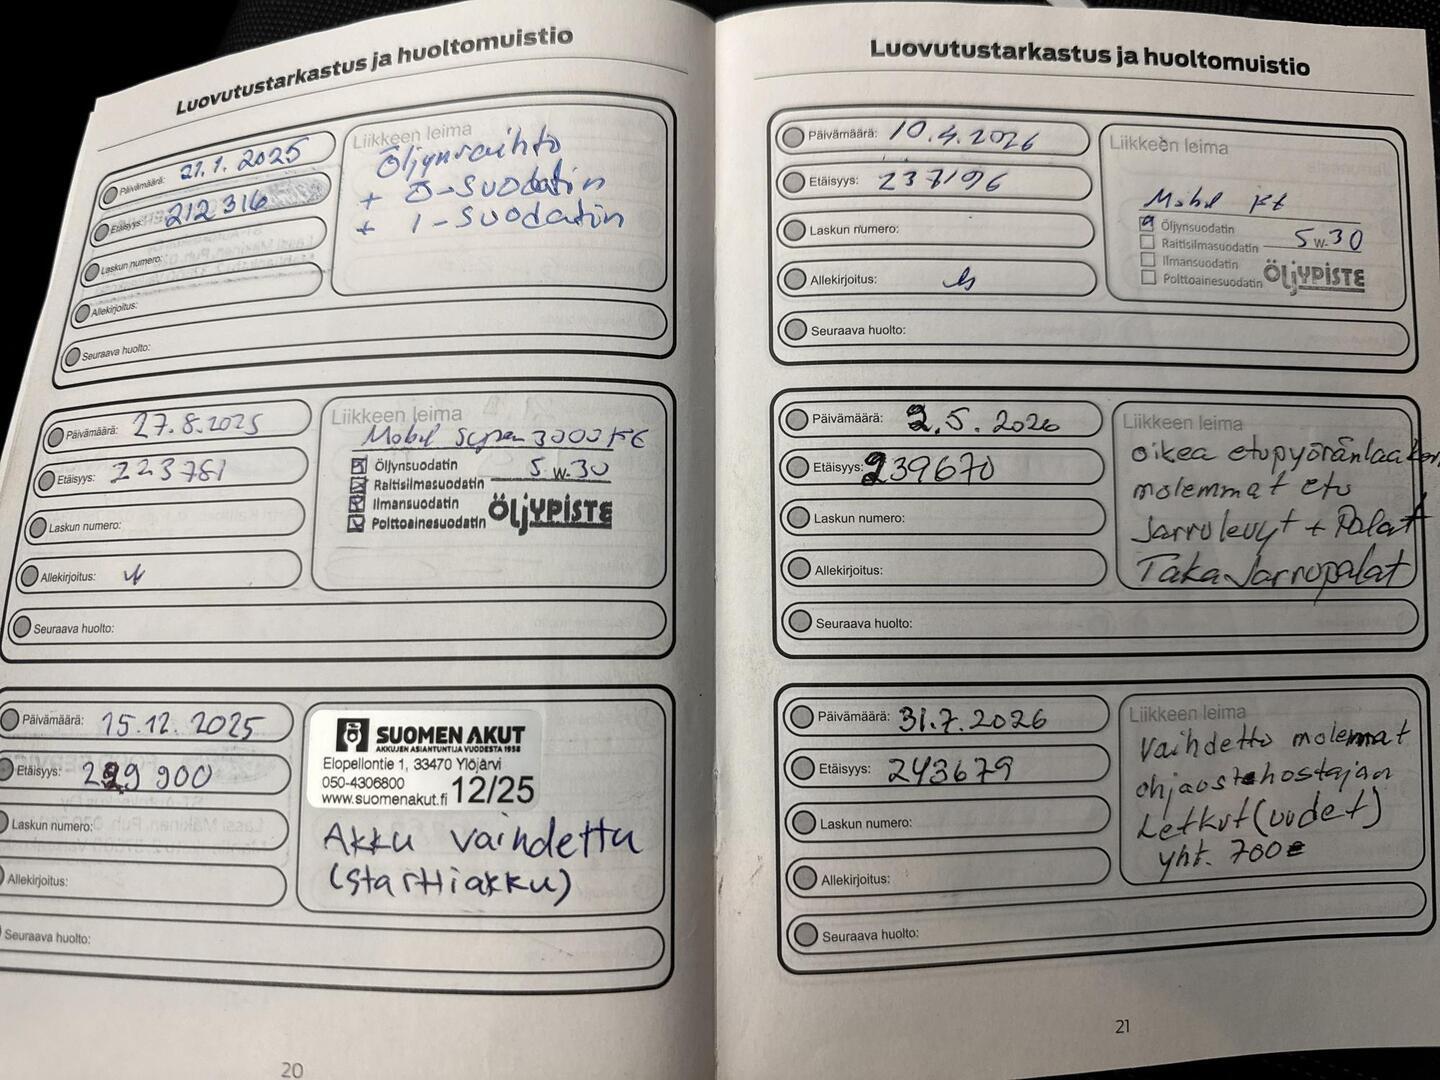 Luovutustarkastus ja huoltomuistio
Päivämäärä: 21.1.2025
Etäisyys: 212 316
Laskun numero:
Allekirjoitus:
Seuraava huolto:
Liikkeen leima
Öljynvaihto
+ Ö-suodatin
+ I-suodatin
Päivämäärä: 27.8.2025
Etäisyys: 223781
Laskun numero:
Allekirjoitus:
Seuraava huolto:
Liikkeen leima
Mobil Super 3000 XE
Öljynsuodatin 5 W-30
Raitisilmasuodatin
Ilmansuodatin
Polttoainesuodatin ÖLJYPISTE
Päivämäärä: 15.12.2025
Etäisyys: 229 900
Laskun numero:
Allekirjoitus:
Seuraava huolto:
SUOMEN AKUT
AKKUJEN ASIANTUNTIJA VUODESTA 1958
Elopellontie 1, 33470 Ylöjärvi
050-4306800
www.suomenakut.fi 12/25
Akku vaihdettu
(starttiakku)
20
Luovutustarkastus ja huoltomuistio
Päivämäärä: 10.4.2026
Etäisyys: 237196
Laskun numero:
Allekirjoitus:
Seuraava huolto:
Liikkeen leima
Mobil
Öljynsuodatin
Raitisilmasuodatin 5 W-30
Ilmansuodatin
Polttoainesuodatin ÖLJYPISTE
Päivämäärä: 2.5.2026
Etäisyys: 239670
Laskun numero:
Allekirjoitus:
Seuraava huolto:
Liikkeen leima
oikea etupyöränlaakeri
molemmat etu
Jarrulevyt + Palat
Taka Jarrupalat
Päivämäärä: 31.7.2026
Etäisyys: 243679
Laskun numero:
Allekirjoitus:
Seuraava huolto:
Liikkeen leima
Vaihdettu molemmat
ohjaustehostajan
Letkut (uudet)
yht. 700€
21